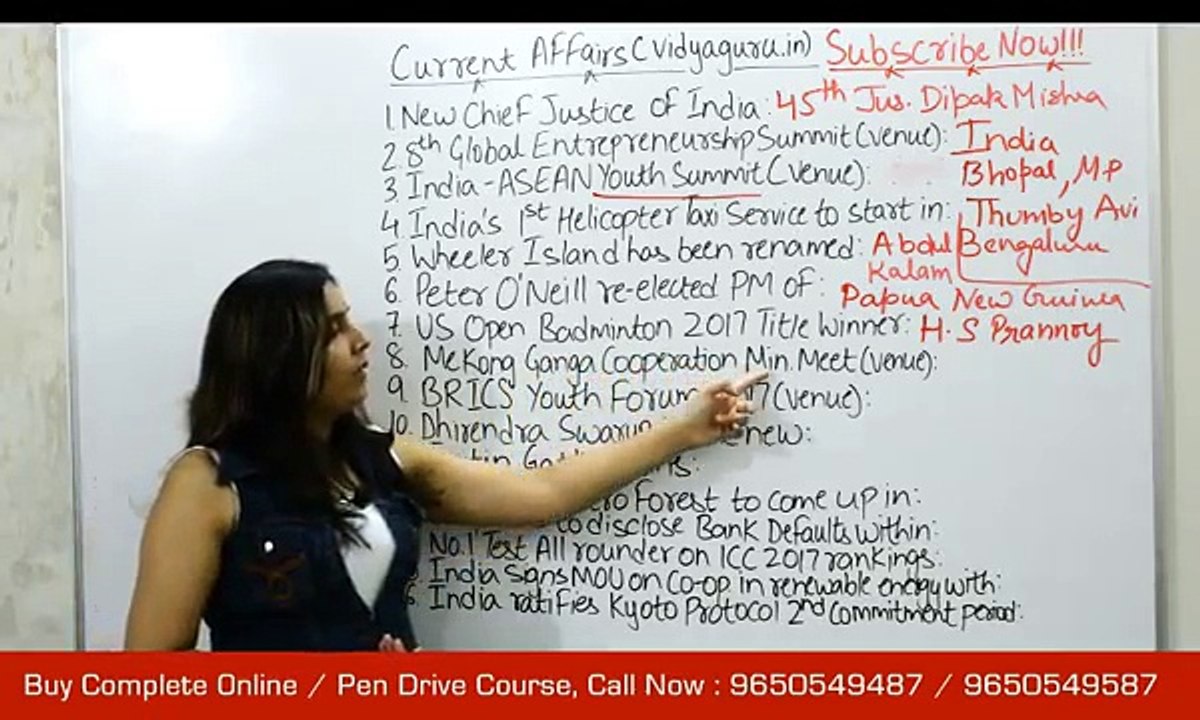 Current Affairs (vidyaguru.in) Subscribe Now!!!
1. New Chief Justice of India: 45th Jus. Dipak Misha
2. 8th Global Entrepreneurship Summit (venue): India
3. India-ASEAN Youth Summit (venue): Bhopal, MP
4. India's 1st Helicopter Taxi Service to start in: Thumby Avi Bengaluru
5. Wheeler Island has been renamed: Abdul Kalam
6. Peter O'Neill re-elected PM of: Papua New Guinea
7. US Open Badminton 2017 Title Winner: H.S Prannoy
8. Mekong Ganga Cooperation Min. Meet (venue):
9. BRICS Youth Forum 17 (venue):
10. Dhirendra Swarup new:
Forest to come up in:
to disclose Bank Defaults within:
No.1 Test All rounder on ICC 2017 rankings:
India Signs MOU on Co-op in renewable energy with:
6. India ratifies Kyoto Protocol 2nd commitment period:
Buy Complete Online / Pen Drive Course, Call Now : 9650549487 / 9650549587